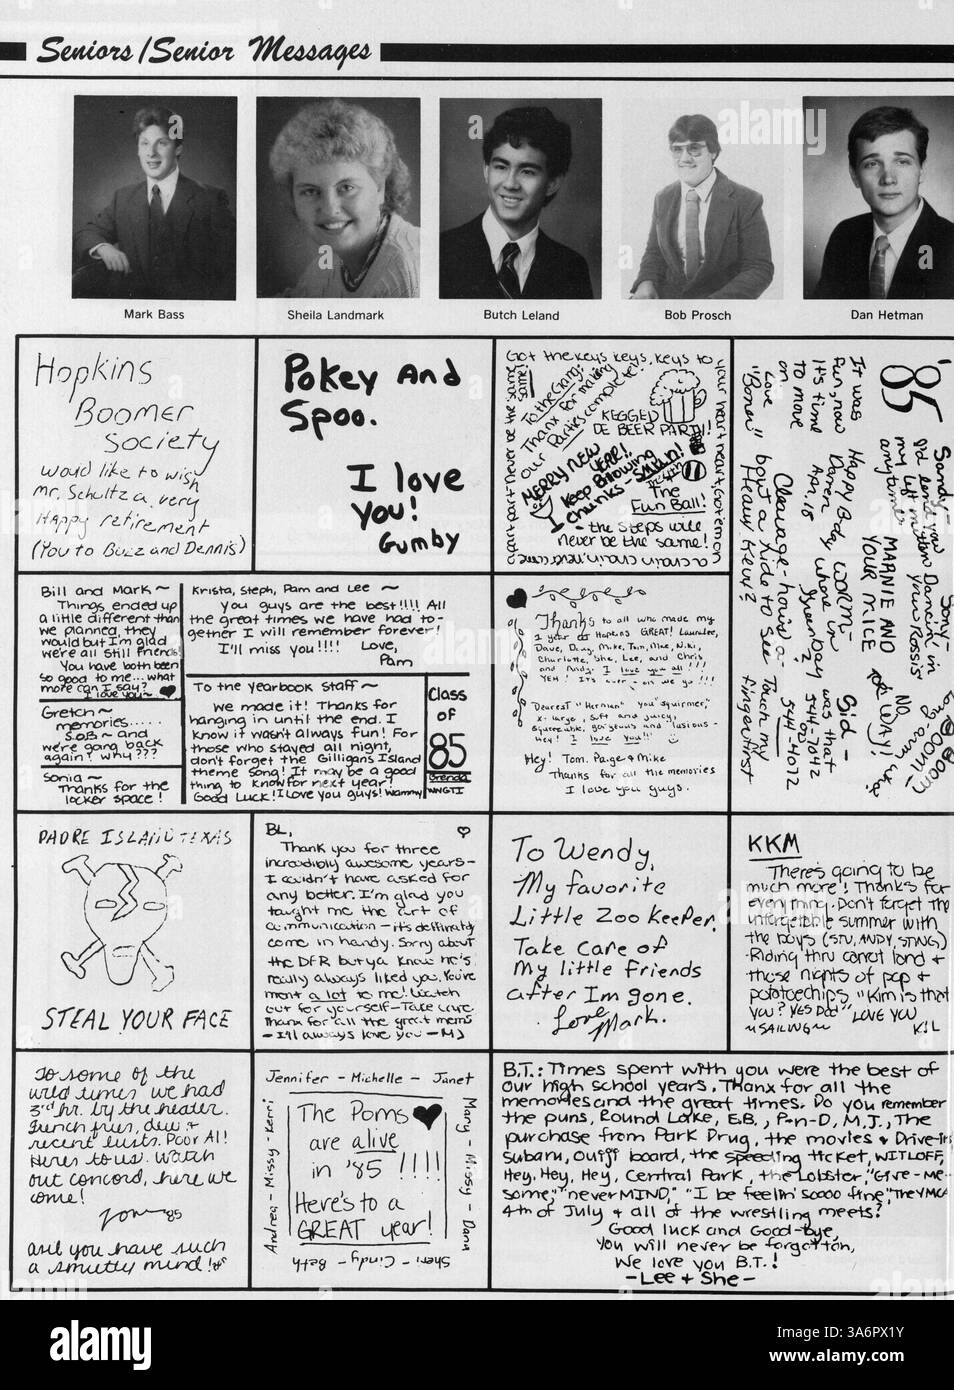 Seniors/Senior Messages
Mark Bass
Sheila Landmark
Butch Leland
Bob Prosch
Dan Hetman
Hopkins
Boomer
Society
would like to wish
mr. Schultz a very
Happy retirement
(You to Buzz and Dennis)
Pokey And
Spoo.
I love
You!
Gumby
Got the keys, keys, keys to your heart
To the Gang:
Thanx for making
our Parties complete!
KEGGED
DE BEER PARTY!
MERRY NEW
YEAR!!
Keep Blowing
chunks-
The
Fun Ball!
- the steps will
never be the same!
'85
It was
fun, now
it's time
to move
on
Love
"Boner"
Happy Bday WORM-
Apr. 18
Cleavage-how's a
bout a ride to see
Heavy Kevy?
MARNIE AND
YOUR MICE
Sid -
544-7042
544-4072
Touch my
finger first
Bill and Mark~
Things ended up
a little different than
we planned, they
would but I'm glad
we're all still friends!
You have both been
so good to me...what
more can I say?
I love you~
Gretch~
memories.....
S.O.B~ and
we're going back
again? why???
Sonia~
Thanks for the
locker space!
Krista, Steph, Pam and Lee~
You guys are the best!!!! All
the great times we have had to-
gether I will remember forever!
I'll miss you!!!! Love,
Pam
To the yearbook staff~
We made it! Thanks for
hanging in until the end. I
know it wasn't always fun! For
those who stayed all night,
don't forget the Gilligans Island
theme song! It may be a good
thing to know for next year!
Good Luck! I Love you guys! Wammy
Class
of
85
Brenda
WNGTI
Thanks to all who made my
1 year at Hopkins GREAT! Laurlee,
Dave, Doug, Mike, Tom, Mac, Niki,
Charlotte, She, Lee, and Chris
and Andy. I love you all!!!
YEH! It's over - on we go!!!
"Dearest "Herman" you squirmer,
x-large, soft and juicy,
squeezable, gorgeous and luscious-
Hey! I love you!!!
Hey! Tom, Paige & Mike
Thanks for all the memories
I love you guys.
PADRE ISLAND TEXAS
STEAL YOUR FACE
BL,
Thank you for three
incredibly awesome years-
I couldn't have asked for
any better. I'm glad you
taught me the art of
communication - it's deffinately
come in handy. Sorry about
the DFR but ya know he's
really always liked you. You've
ment a lot to me! Watch
out for yourself-Take care
Thanx for all the great mems
- I'll always love you - MJ
To Wendy,
My favorite
Little Zoo Keeper.
Take care of
My little friends
after I'm gone.
Love
Mark.
KKM
There's going to be
much more! Thanks for
everything. Don't forget the
unforgetable summer with
the boys (STU, ANDY, STING)
Riding thru corn land &
those nights of pop &
potatoechips, "Kim is that
you? YES Dad" LOVE YOU
~SAILING~ KJL
To some of the
wild times we had
3rd hr. by the heater.
French fries, dew &
recent lusts. Poor Al!
Heres to us. Watch
out concord, here we
come!
Tom 85
and you have such
a smutty mind!
Jennifer - Michelle - Janet
Mary - Missy - Dana
Sheri - Cindy - Beth
Andrea - Missy - Kerri
The Poms
are alive
in '85 !!!!
Here's to a
GREAT year!
B.T.: Times spent with you were the best of
our high school years. Thanx for all the
memories and the great times. Do you remember
the puns, Round Lake, E.B., P-n-D, M.J., The
purchase from Park Drug, the movies & Drive-ins
subaru, Ouigi board, the speeding ticket, WITLOFF,
Hey, Hey, Hey, Central Park, the Lobster, "Give-me-
some," "neverMIND," "I be feelin' soooo fine," The YMCA
4th of July & all of the wrestling meets?
Good luck and Good-bye,
You will never be forgotten,
We love you B.T.!
-Lee & She-
alamy
Image ID: 3A6PX1Y
www.alamy.com